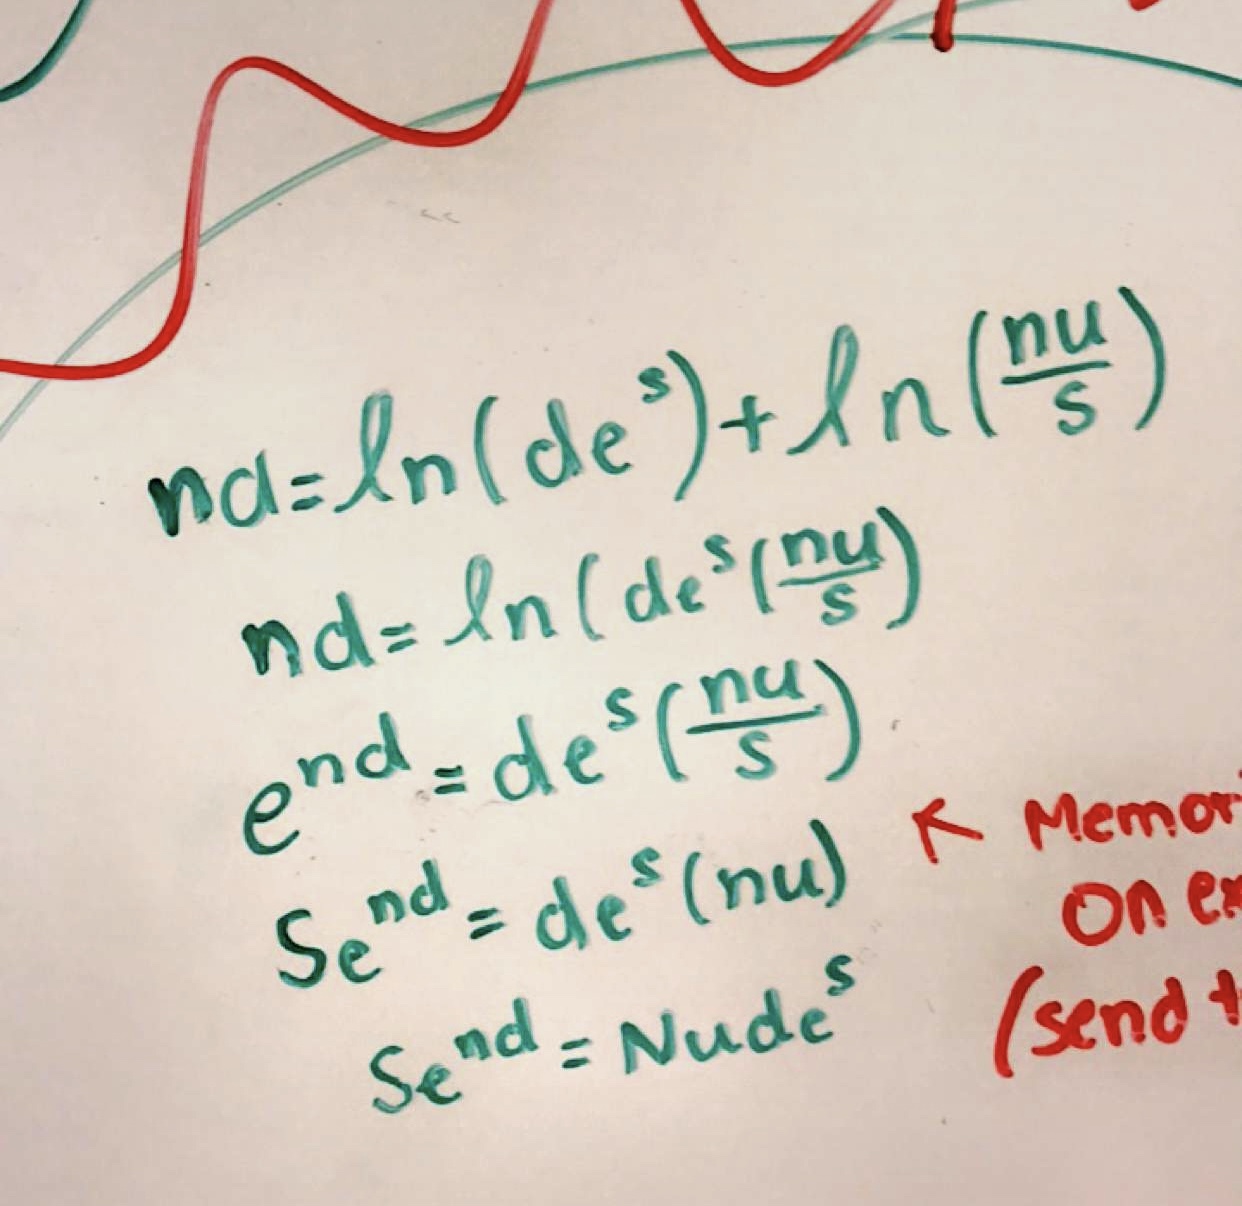 nd = ln(de^s) + ln(nu/s)
nd = ln(de^s(nu/s)
e^nd = de^s(nu/s)
Se^nd = de^s(nu)
Se^nd = Nude^s
↖ Memor
On ex
(send t